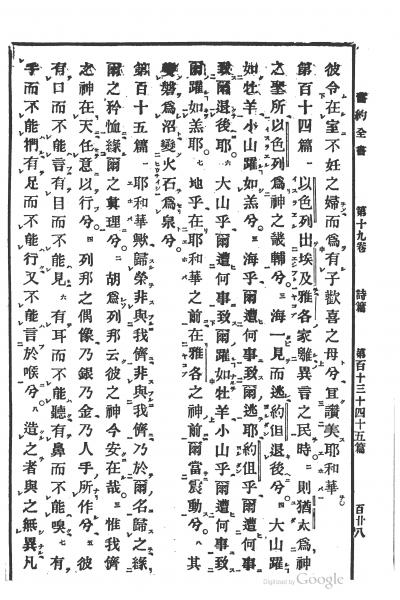 舊約全書 第十九卷 詩篇 第百十三十四十五篇 百廿八
彼令在室不妊之婦而爲有子歡喜之母兮宜讚美耶和華
第百十四篇 一以色列出埃及雅各家離異言之民時二則猶太爲神
之聖所以色列爲神之畿輔兮三海一見而逃約但退後兮四大山躍
如牡羊小山躍如羔兮五海乎爾遭何事致爾逃耶約但乎爾遭何事
致爾退後耶六大山乎爾遭何事致爾躍如牡羊小山乎爾遭何事致
爾躍如羔耶七地乎在耶和華之前在雅各之神前爾當震動兮八其
變磐爲沼變火石爲泉兮
第百十五篇 一耶和華歟歸榮非與我儕非與我儕乃於爾名歸之緣
爾之矜恤緣爾之眞理兮二胡爲列邦云彼之神今安在哉三惟我儕
之神在天任意以行兮四列邦之偶像乃銀乃金乃人手所作兮五彼
有口而不能言有目而不能見六有耳而不能聽有鼻而不能嗅七有
手而不能捫有足而不能行又不能言於喉兮八造之者與之無異凡
Digitized by Google